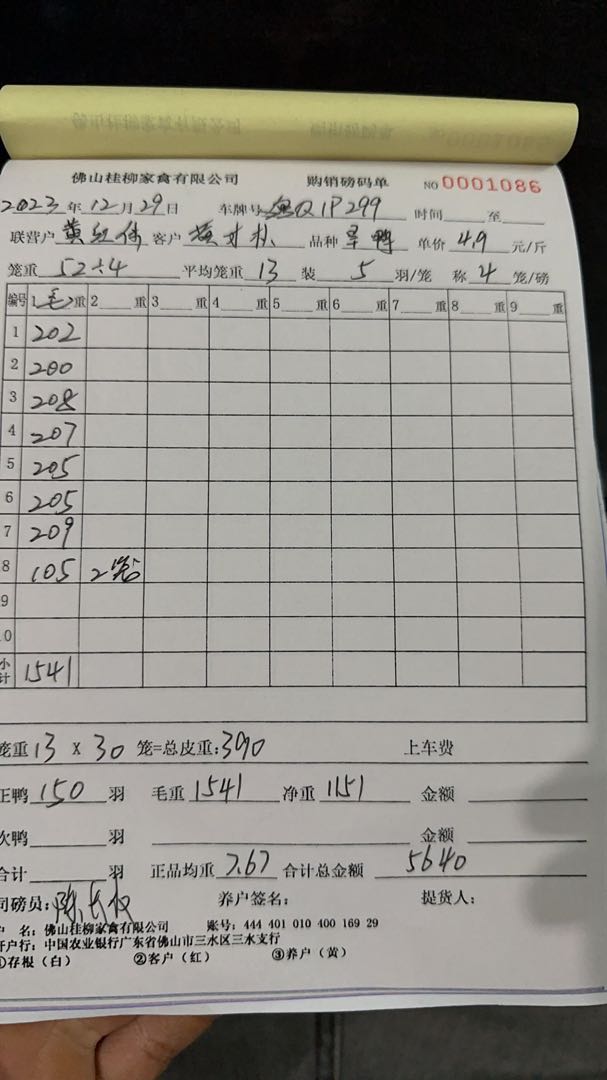 佛山桂柳家禽有限公司 购销磅码单 NO 0001086
2023年12月29日 车牌号 Q1P299 时间 至
联营户 黄 客户 品种 鸭 单价 4.9 元/斤
笼重 52÷4 平均笼重 13 装 5 羽/笼 称 4 笼/磅
编号 1 毛 重 2 重 3 重 4 重 5 重 6 重 7 重 8 重 9 重
1 202
2 200
3 208
4 207
5 205
6 205
7 209
8 105 2笼
9
0
小计 1541
笼重 13 X 30 笼=总皮重:390 上车费
正鸭 150 羽 毛重 1541 净重 1151 金额
次鸭 羽 金额
合计 羽 正品均重 7.67 合计总金额 5640
司磅员: 陈 养户签名: 提货人:
户 名: 佛山桂柳家禽有限公司 账号: 444 401 010 400 169 29
开户行: 中国农业银行广东省佛山市三水区三水支行
①存根(白) ②客户(红) ③养户(黄)